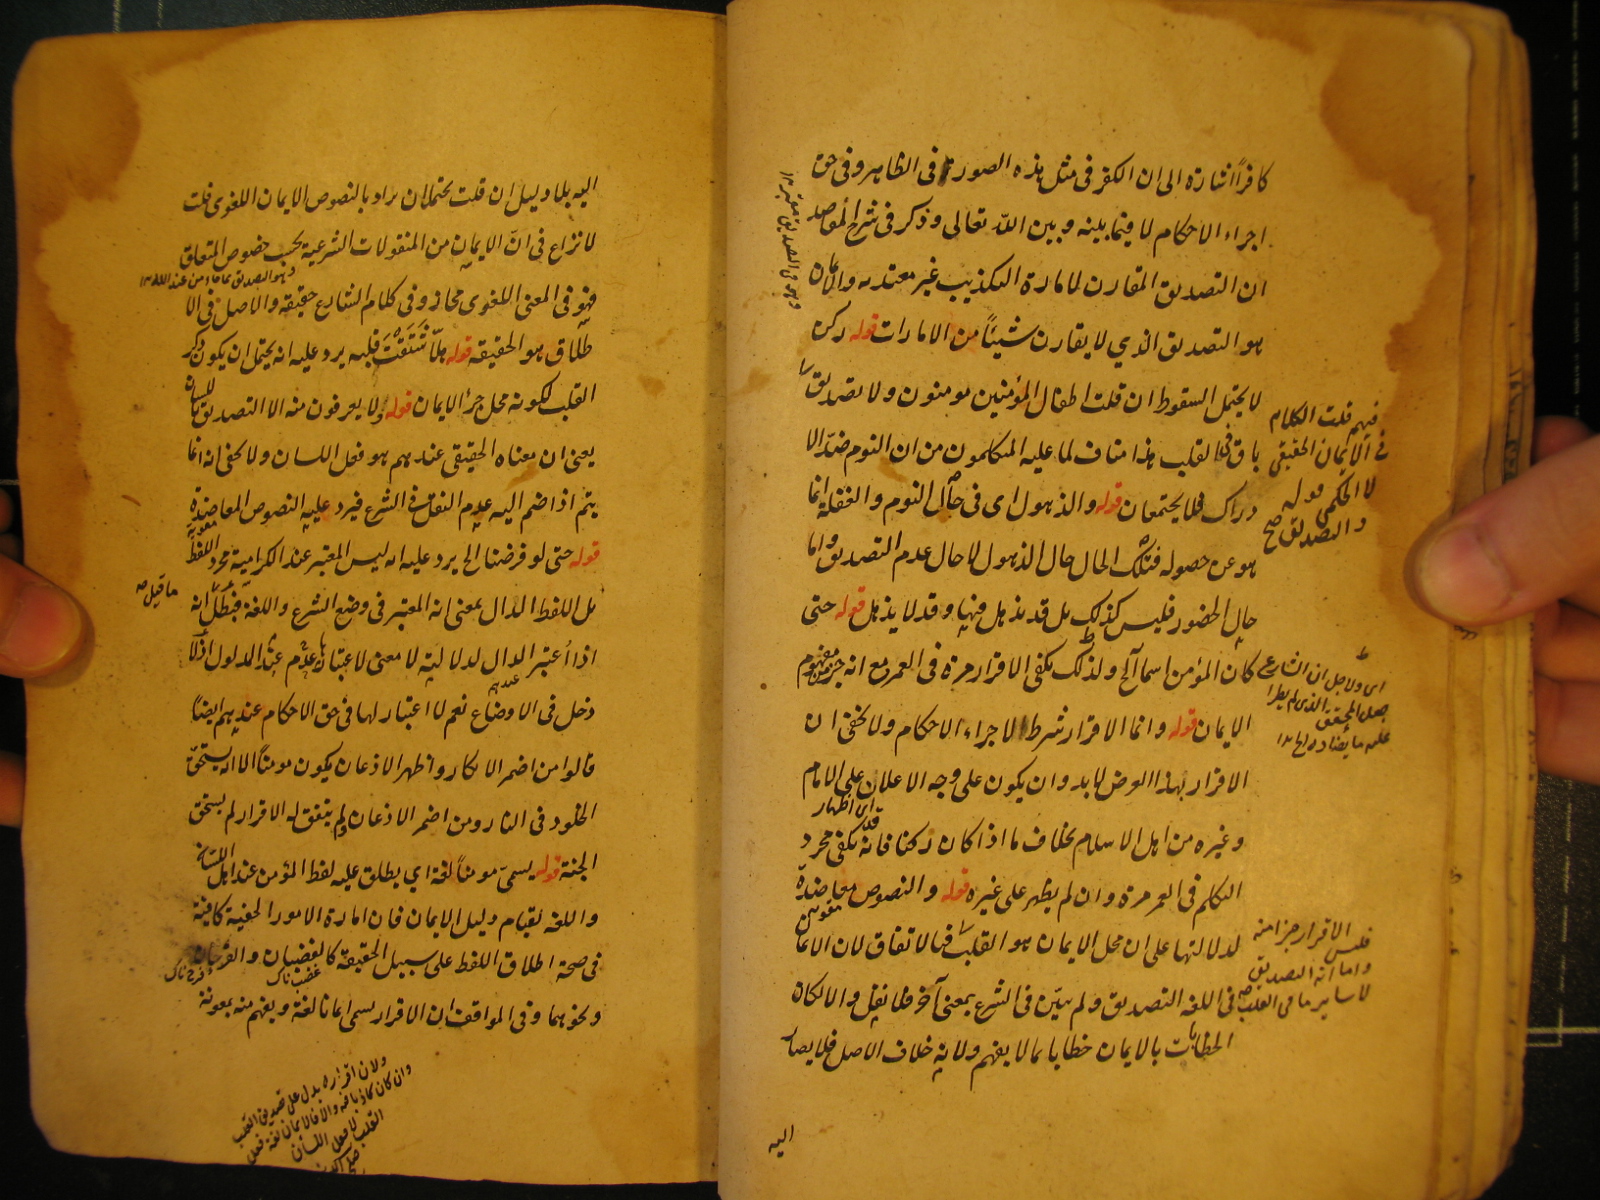 كافرا اشارة الى ان الكفر فى مثل هذه الصورة فى الظاهر وفى حق
اجراء الاحكام لا فيما بينه وبين الله تعالى وذكر فى شرح المقاصد
ان التصديق المقارن لامارة التكذيب غير معتد به والايمان
هو التصديق الذي لا يقارن شيئاً من الامارات قوله ركن
لا يحتمل السقوط ان قلت اطفال المؤمنين مومنون ولا تصديق
باق فى القلب هذا مناف لما عليه المتكلمون من ان النوم ضد الا
دراك فلا يجتمعان قوله والذهول اى فى حال النوم والغفلة انما
هو عن حصوله فتلك الحال حال الذهول لا حال عدم التصديق واما
حال الحضور فليس كذلك بل قد يذهل فيها وقد لا يذهل قوله حتى
كان المؤمن اسما الخ ولذلك يكفى الاقرار مرة فى العمر مع انه جزء من مفهوم
الايمان قوله وانما الاقرار شرط لاجراء الاحكام ولا يخفى ان
الاقرار بهذا الغرض لا بد وان يكون على وجه الاعلان على الامام
وغيره من اهل الاسلام بخلاف ما اذا كان ركنا فانه يكفى مجرد
التكلم فى العمر مرة وان لم يظهر على غيره قوله والنصوص معاضدة
لدلالتها على ان محل الايمان هو القلب فبالاتفاق لان الايمان
فى اللغة التصديق ولم يبيّن فى الشرع بمعنى آخر فلا نقل والا لكان
الخطاب بالايمان خطابا بما لا يفهم ولانه خلاف الاصل فلا يصار
اليه
وهو فى التصديق معتبر ١٢
فيهم قلت الكلام
فى الايمان الحقيقى
لا الحكمى قوله
والتصديق صح
اى ولاجل ان الشارع
جعل المحقق الذى لم يطرأ
عليه ما يضاده الخ ١٢
اى اظهار
مقوية
فليس الاقرار جزأ منه
واما انه التصديق
لا ساير ما فى القلب
اليه بلا دليل ان قلت يحتمل ان يراد بالنصوص الايمان اللغوى قلت
لا نزاع فى انّ الايمان من المنقولات الشرعية بحسب خصوص المتعلق
وهو التصديق بما جاء من عند الله ١٢
فهو فى المعنى اللغوى مجاز وفى كلام الشارع حقيقة والاصل فى الا
طلاق هو الحقيقة قوله هلّا شَقَقْتَ قلبه يرد عليه انه يحتمل ان يكون ذكر
القلب لكونه محل جزء الايمان قوله ولا يعرفون منه الا التصديق باللسان
يعنى ان معناه الحقيقى عندهم هو فعل اللسان ولا يخفى انه انما
يتم اذا ضم اليه عدم النقل فى الشرع فيرد عليه النصوص المعاضدة
مقوية
قوله حتى لو فرضنا الخ يرد عليه انه ليس المعتبر عند الكرامية مجرد اللفظ
بل اللفظ الدال بمعنى انه المعتبر فى وضع الشرع واللغة فبطل ما قيل انه
اذا اُعتبر الدال لدلالته لا معنى لاعتبارها عند عدم المدلول اذ لا
دخل فى الاوضاع نعم لا اعتبار لها فى حق الاحكام عندهم ايضاً
قالوا من اضمر الانكار واظهر الاذعان يكون مومناً الا انه يستحق
الخلود فى النار ومن اضمر الاذعان ولم يتفق له الاقرار لم يستحق
الجنة قوله يسمىّ مومناً لغة اي يطلق عليه لفظ المؤمن عند اهل اللسان
واللغة لقيام دليل الايمان فان امارة الامور الخفية كافية
فى صحة اطلاق اللفظ على سبيل الحقيقة كالغضبان والفرحان
غضبناك
فرحناك
ونحوهما وفى المواقف ان الاقرار يسمى ايمانا لغة ويفهم منه بمعونة
ولان اقراره يدل على تصديق القلب
وان كان كاذبا فيه والا فالايمان لغة فعل
القلب لا فعل اللسان